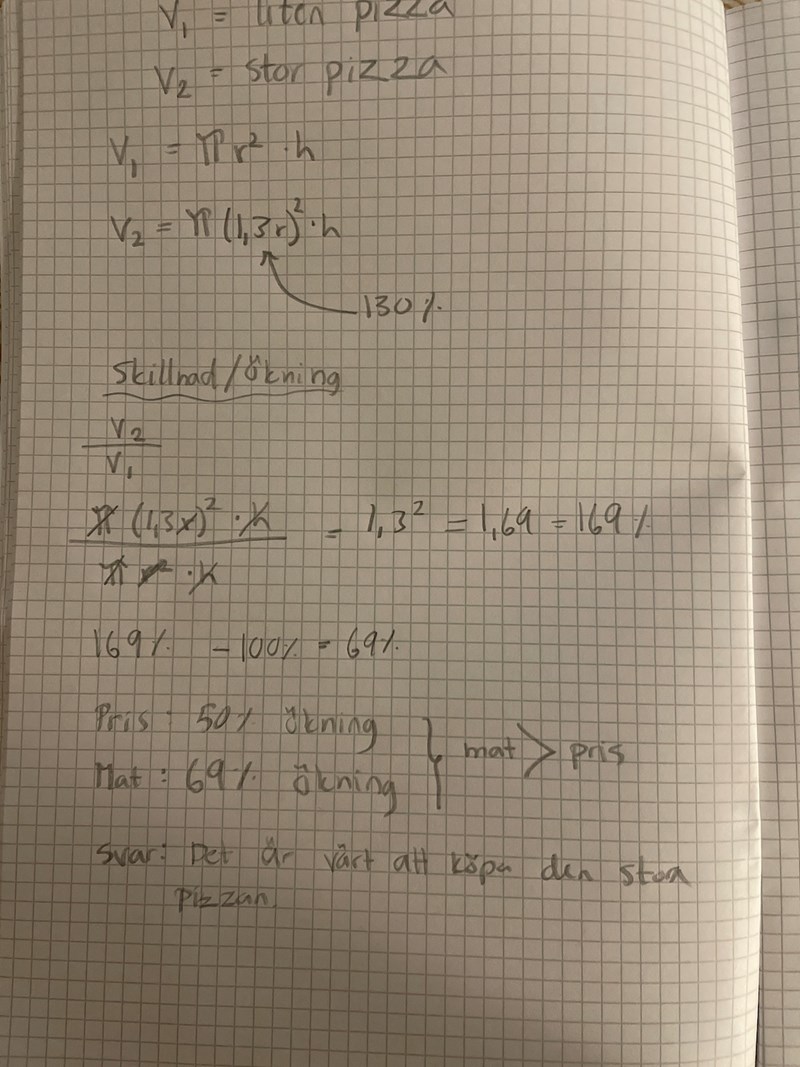 V₁ = liten pizza
V₂ = stor pizza
V₁ = πr² · h
V₂ = π(1,3r)² · h
130%
Skillnad/Ökning
V₂
V₁
π (1,3r)² · h = 1,3² = 1,69 = 169%
π r² · h
169% - 100% = 69%
Pris : 50% ökning
Mat : 69% ökning
mat > pris
Svar: Det är värt att köpa den stora
pizzan